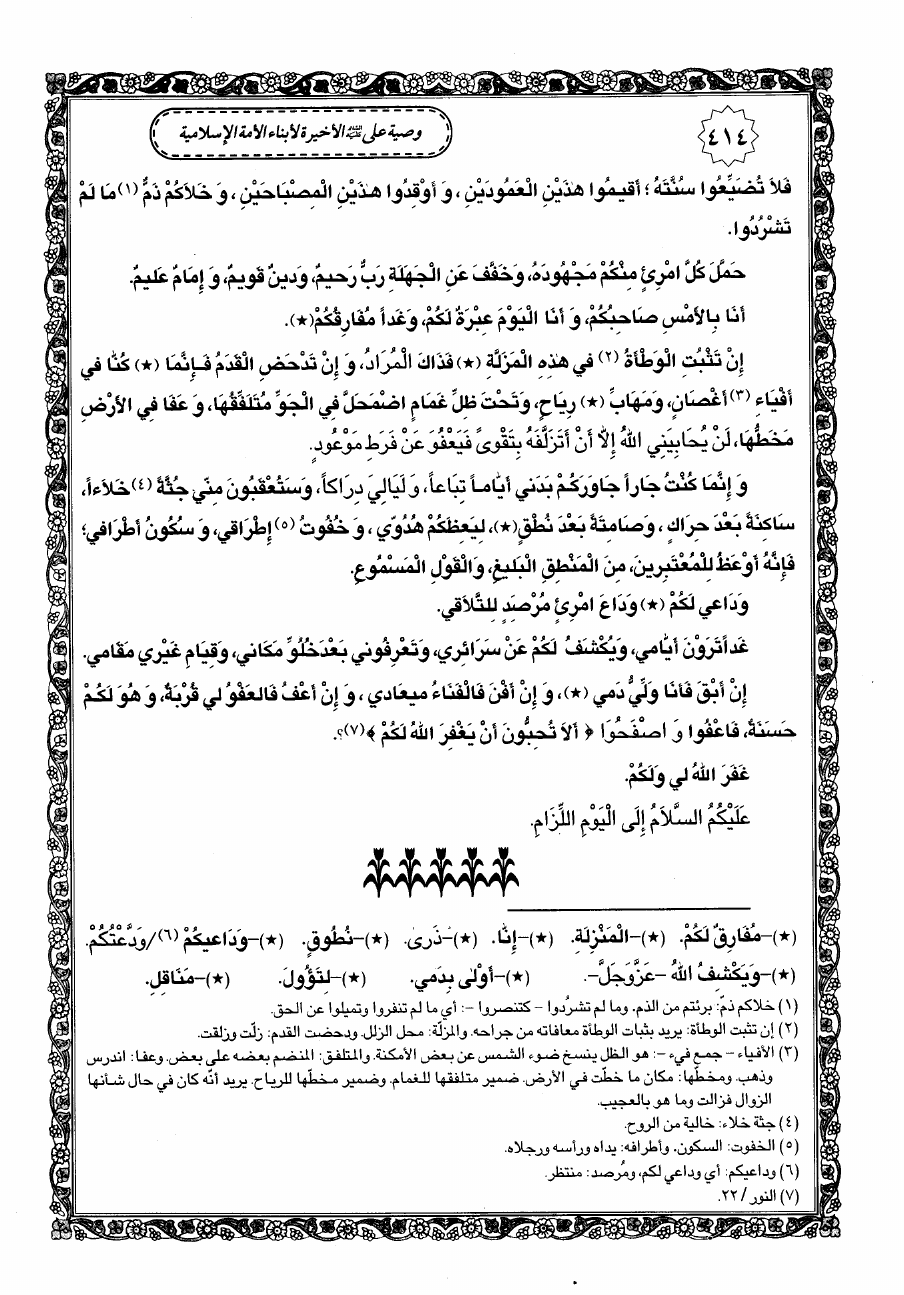 ٤١٤
وصية علي عليه السلام الأخيرة لأبناء الأمة الإسلامية
فَلاَ تُضَيِّعُوا سُنَّتَهُ ؛ أَقيمُوا هذَيْنِ الْعَمُودَيْنِ ، وَ أَوْقِدُوا هذَيْنِ الْمِصْبَاحَيْنِ ، وَ خَلاَكُمْ ذَمٌّ (١) مَا لَمْ
تَشْرُدُوا.
حَمَّلَ كُلَّ امْرِئٍ مِنْكُمْ مَجْهُودَهُ، وَ خَفَّفَ عَنِ الْجَهَلَةِ رَبٌّ رَحيمٌ، وَدينٌ قَويمٌ، وَ إِمَامٌ عَليمٌ.
أَنَا بِالأَمْسِ صَاحِبُكُمْ، وَ أَنَا الْيَوْمَ عِبْرَةٌ لَكُمْ، وَغَداً مُفَارِقُكُمْ(★).
إِنْ تَثْبُتِ الْوَطْأَةُ (٢) في هذِهِ الْمَزَلَّةِ (★) فَذَاكَ الْمُرَادُ، وَ إِنْ تَدْحَضِ الْقَدَمُ فَإِنَّمَا (★) كُنَّا في
أَفْيَاءِ (٣) أَغْصَانٍ، وَمَهَابِّ (★) رِيَاحٍ، وَتَحْتَ ظِلِّ غَمَامٍ اضْمَحَلَّ فِي الْجَوِّ مُتَلَفِّقُهَا، وَ عَفَا فِي الأَرْضِ
مَخَطُّهَا، لَنْ يُحَابِيَنِي اللهُ إِلاَّ أَنْ أَتَزَلَّفَهُ بِتَقْوىً فَيَعْفُوَ عَنْ فَرَطٍ مَوْعُودٍ.
وَ إِنَّمَا كُنْتُ جَاراً جَاوَرَكُمْ بَدَني أَيَّاماً تِبَاعاً، وَ لَيَالِيَ دِرَاكاً، وَسَتُعْقَبُونَ مِنّي جُثَّةً (٤) خَلاَءاً،
سَاكِنَةً بَعْدَ حِرَاكٍ ، وَصَامِتَةً بَعْدَ نُطْقٍ(★)، لِيَعِظَكُمْ هُدُوّي ، وَ خُفُوتُ (٥) إِطْرَاقي، وَ سُكُونُ أَطْرَافي؛
فَإِنَّهُ أَوْعَظُ لِلْمُعْتَبِرينَ، مِنَ الْمَنْطِقِ الْبَليغِ، وَالْقَوْلِ الْمَسْمُوعِ.
وَدَاعي لَكُمْ (★) وَدَاعَ امْرِئٍ مُرْصَدٍ لِلتَّلاَقي.
غَداً تَرَوْنَ أَيَّامي، وَيُكْشَفُ لَكُمْ عَنْ سَرَائِري، وَتَعْرِفُوني بَعْدَ خُلُوِّ مَكَاني، وَقِيَامِ غَيْري مَقَامي.
إِنْ أَبْقَ فَأَنَا وَلِيُّ دَمي (★)، وَ إِنْ أَفْنَ فَالْفَنَاءُ ميعَادي ، وَ إِنْ أَعْفُ فَالعَفْوُ لي قُرْبَةٌ، وَ هُوَ لَكُمْ
حَسَنَةٌ، فَاعْفُوا وَ اصْفَحُوا ﴿ أَلاَ تُحِبُّونَ أَنْ يَغْفِرَ اللهُ لَكُمْ ﴾(٧)؟.
غَفَرَ اللهُ لي وَلَكُمْ.
عَلَيْكُمُ السَّلاَمُ إِلَى الْيَوْمِ اللِّزَامِ.
(★)–مُفَارِقٌ لَكُمْ. (★)–الْمَنْزِلَةِ. (★)–إِنَّا. (★)–ذَرىٰ. (★)–نُطُوقٍ. (★)–وَدَاعيكُمْ (٦)/وَدَّعْتُكُمْ.
(★)–وَيَكْشِفُ اللهُ –عَزَّوَجَلَّ–. (★)–أَوْلىٰ بِدَمي. (★)–لِتَؤُولَ. (★)–مَنَاقِلِ.
(١) خلاكم ذمّ: برئتم من الذم. وما لم تشرُدوا – كتنصروا –: أي ما لم تنفروا وتميلوا عن الحق.
(٢) إن تثبت الوطأة: يريد بثبات الوطأة معافاته من جراحه. والمزلّة: محل الزلل. ودحضت القدم: زلّت وزلقت.
(٣) الأفياء – جمع فيء –: هو الظل ينسخ ضوء الشمس عن بعض الأمكنة. والمتلفق: المنضم بعضه على بعض. وعفا: اندرس
وذهب. ومخطّها: مكان ما خطّت في الأرض. ضمير متلفقها للغمام. وضمير مخطّها للرياح. يريد أنّه كان في حال شأنها
الزوال فزالت وما هو بالعجيب.
(٤) جثة خلاء: خالية من الروح.
(٥) الخفوت: السكون. وأطرافه: يداه ورأسه ورجلاه.
(٦) وداعيكم: أي وداعي لكم، ومُرصد: منتظر.
(٧) النور / ٢٢.